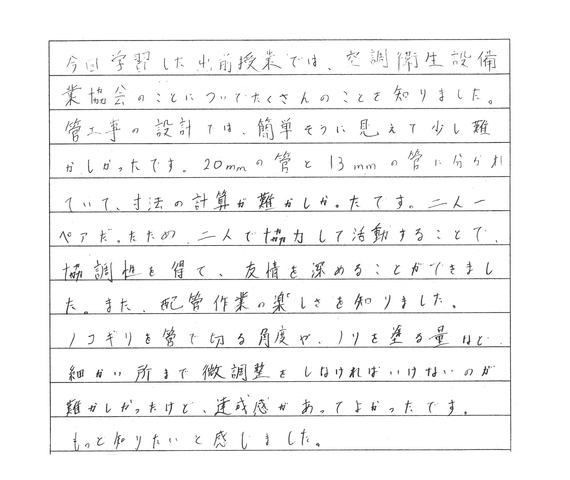 今回学習した出前授業では、空調衛生設備
業協会のことについてたくさんのことを知りました。
管工事の設計では、簡単そうに見えて少し難
かしかったです。20mmの管と13mmの管に分かれ
ていて、寸法の計算が難かしかったです。二人一
ペアだったため、二人で協力して活動することで、
協調性を得て、友情を深めることができまし
た。また、配管作業の楽しさを知りました。
ノコギリを管で切る角度や、ノリを塗る量など、
細かい所まで微調整をしなければいけないのが
難かしかったけど、達成感があってよかったです。
もっと知りたいと感じました。